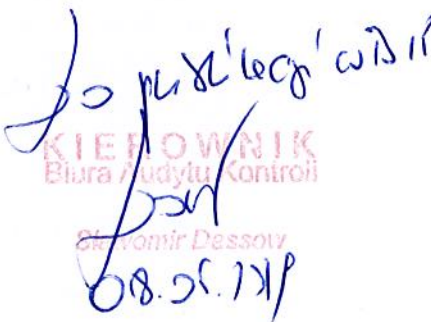 Do publikacji w BIP
KIEROWNIK
Biura Audytu i Kontroli
Sławomir Dessow